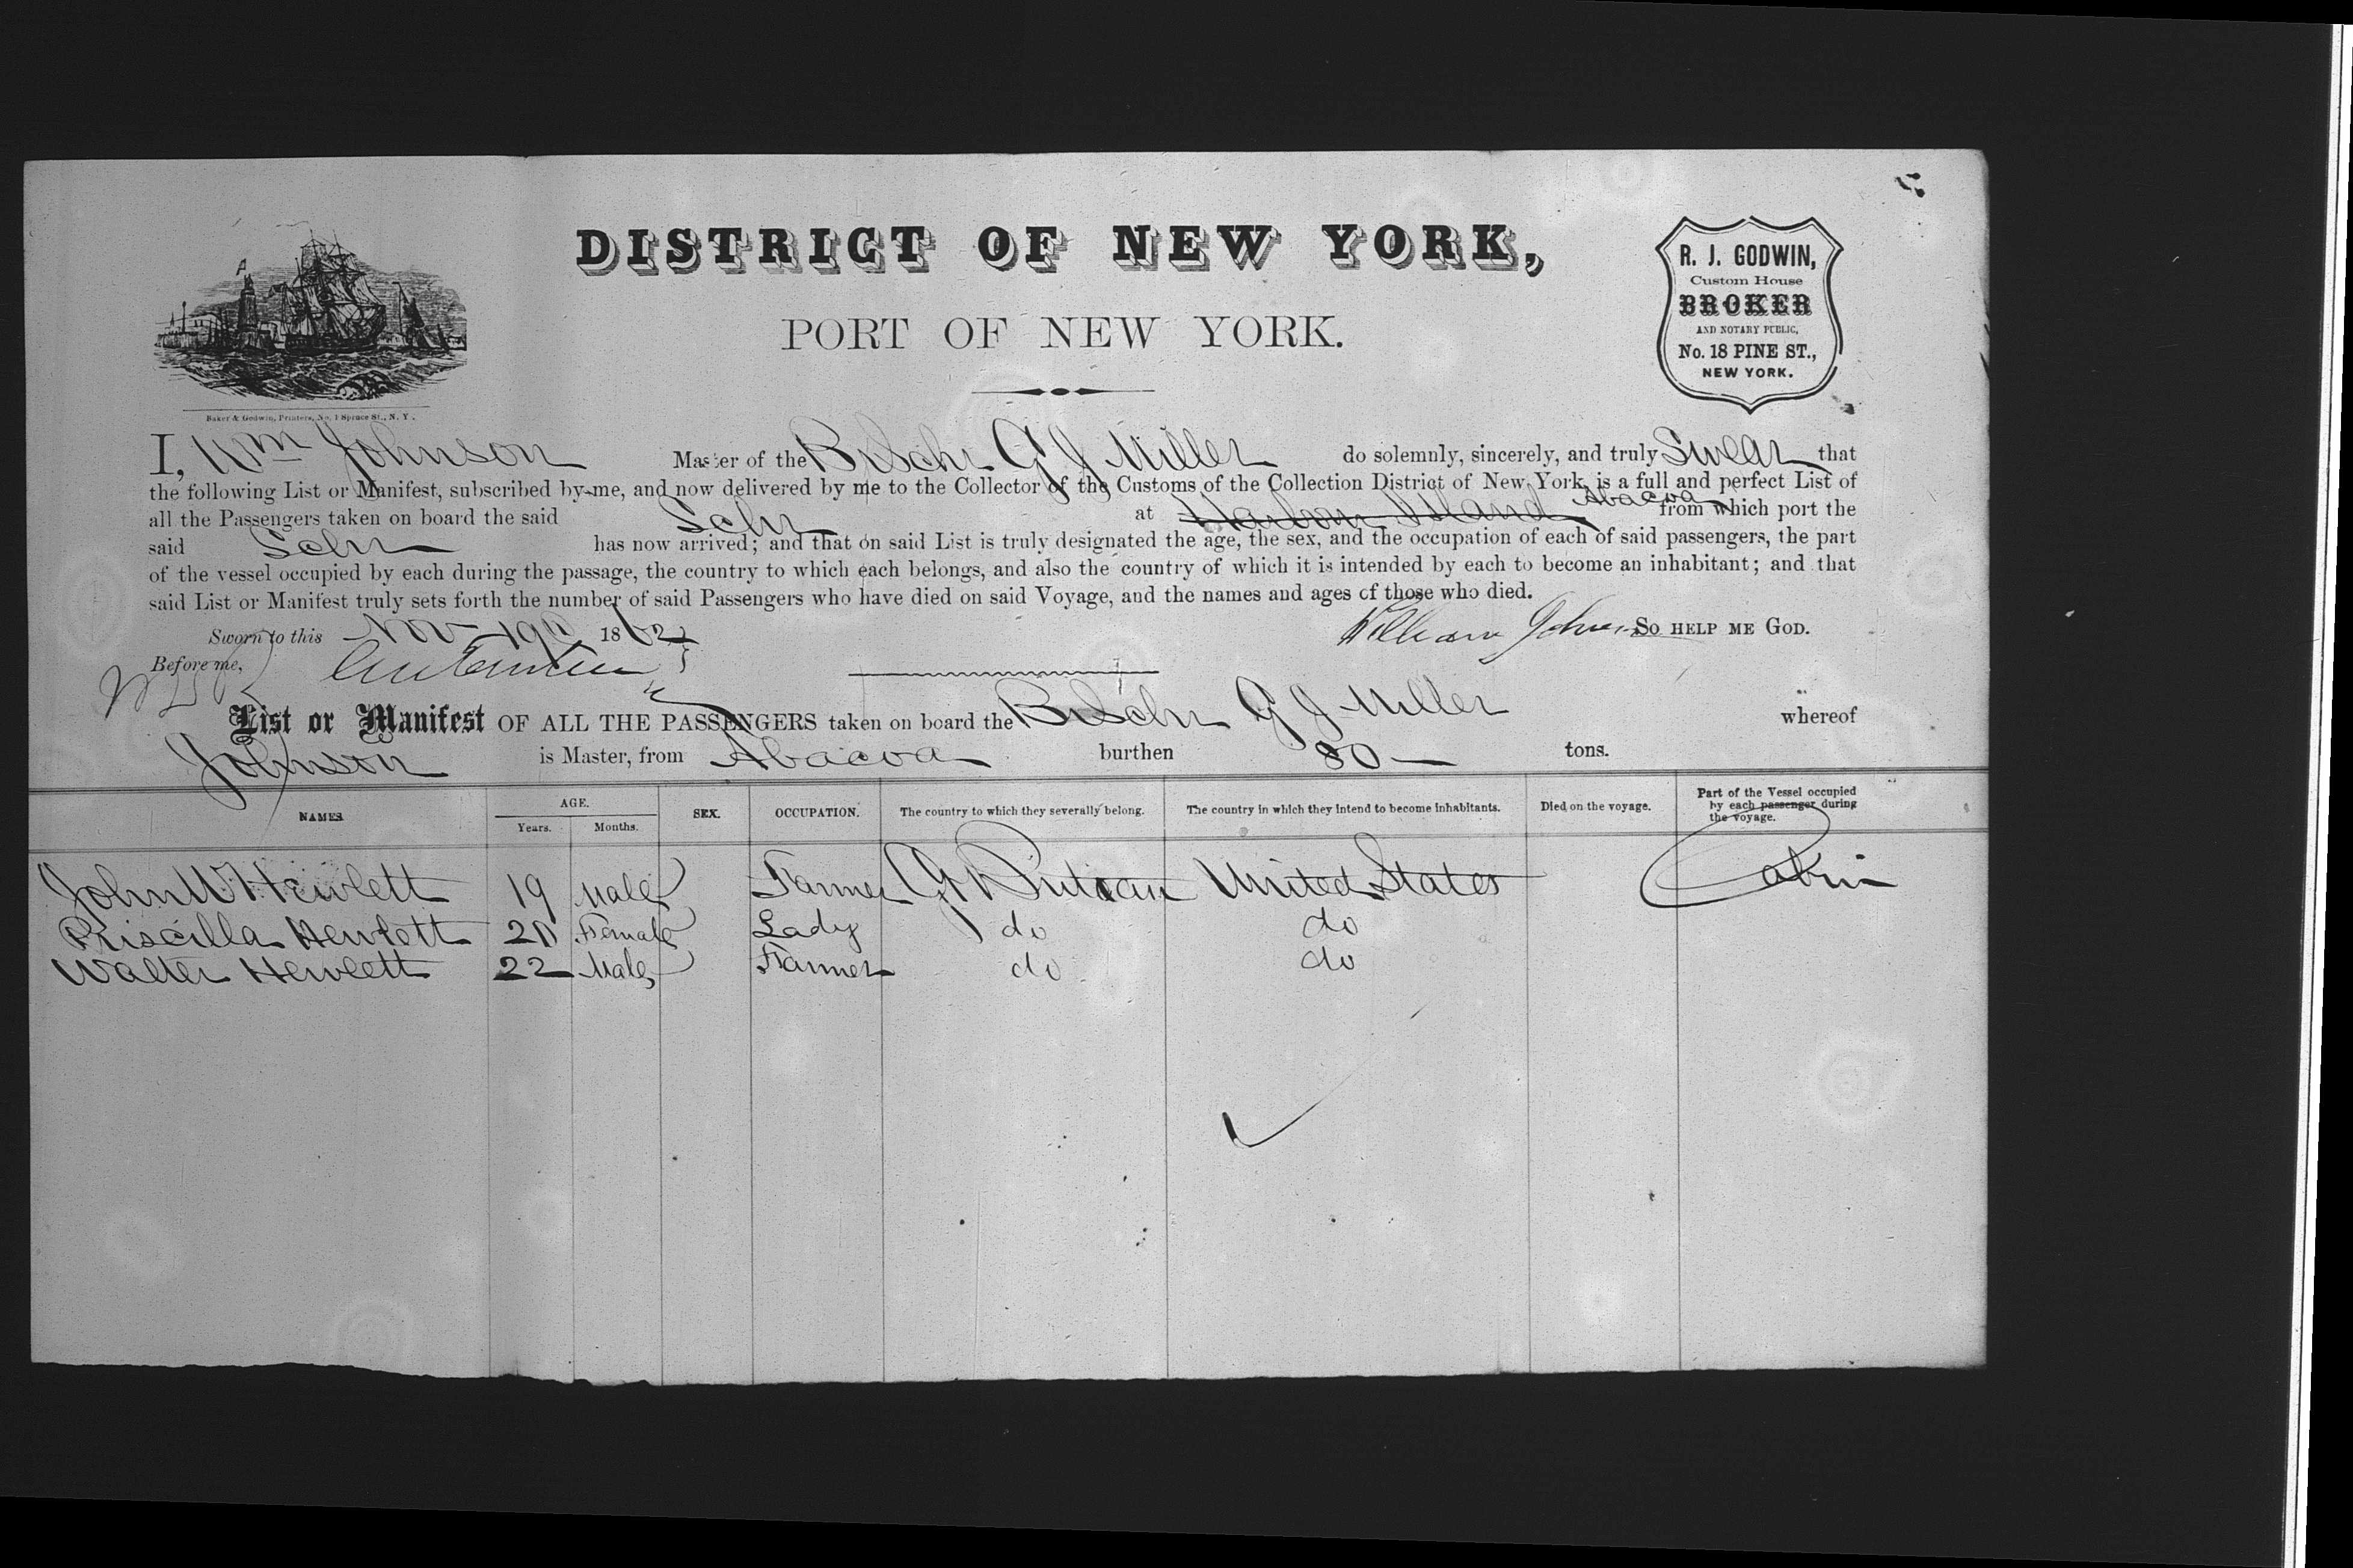 DISTRICT OF NEW YORK,
PORT OF NEW YORK.
R. J. GODWIN,
Custom House
BROKER
AND NOTARY PUBLIC,
No. 18 PINE ST.,
NEW YORK.
Baker & Godwin, Printers, No. 1 Spruce St., N. Y.
I, Wm Johnson Master of the Br Schr G J Miller do solemnly, sincerely, and truly Swear that
the following List or Manifest, subscribed by me, and now delivered by me to the Collector of the Customs of the Collection District of New York, is a full and perfect List of
all the Passengers taken on board the said Schr at Harbour Island Abacoa from which port the
said Schr has now arrived; and that on said List is truly designated the age, the sex, and the occupation of each of said passengers, the part
of the vessel occupied by each during the passage, the country to which each belongs, and also the country of which it is intended by each to become an inhabitant; and that
said List or Manifest truly sets forth the number of said Passengers who have died on said Voyage, and the names and ages of those who died.
Sworn to this Nov 19th 1862 William Johnson SO HELP ME GOD.
Before me,
List or Manifest OF ALL THE PASSENGERS taken on board the Br Schr G J Miller whereof
Johnson is Master, from Abacoa burthen 80 tons.
NAMES AGE. Years. Months. SEX. OCCUPATION. The country to which they severally belong. The country in which they intend to become inhabitants. Died on the voyage. Part of the Vessel occupied by each passenger during the voyage.
John W Hewlett 19 Male Farmer G Britain United States Cabin
Priscilla Hewlett 20 Female Lady do do
Walter Hewlett 22 Male Farmer do do